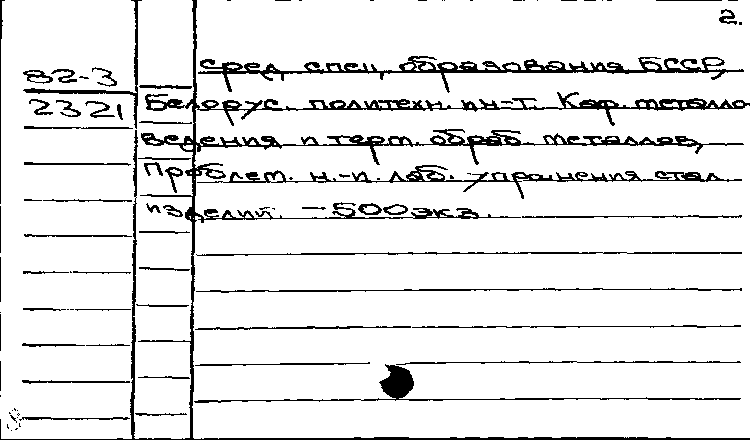 2.
82-3
2321
сред. спец. образования БССР,
Белорус. политехн. ин-т. Каф. металло-
ведения и терм. обраб. металлов,
Проблем. н.-и. лаб. упрочнения стал.
изделий. — 500 экз.